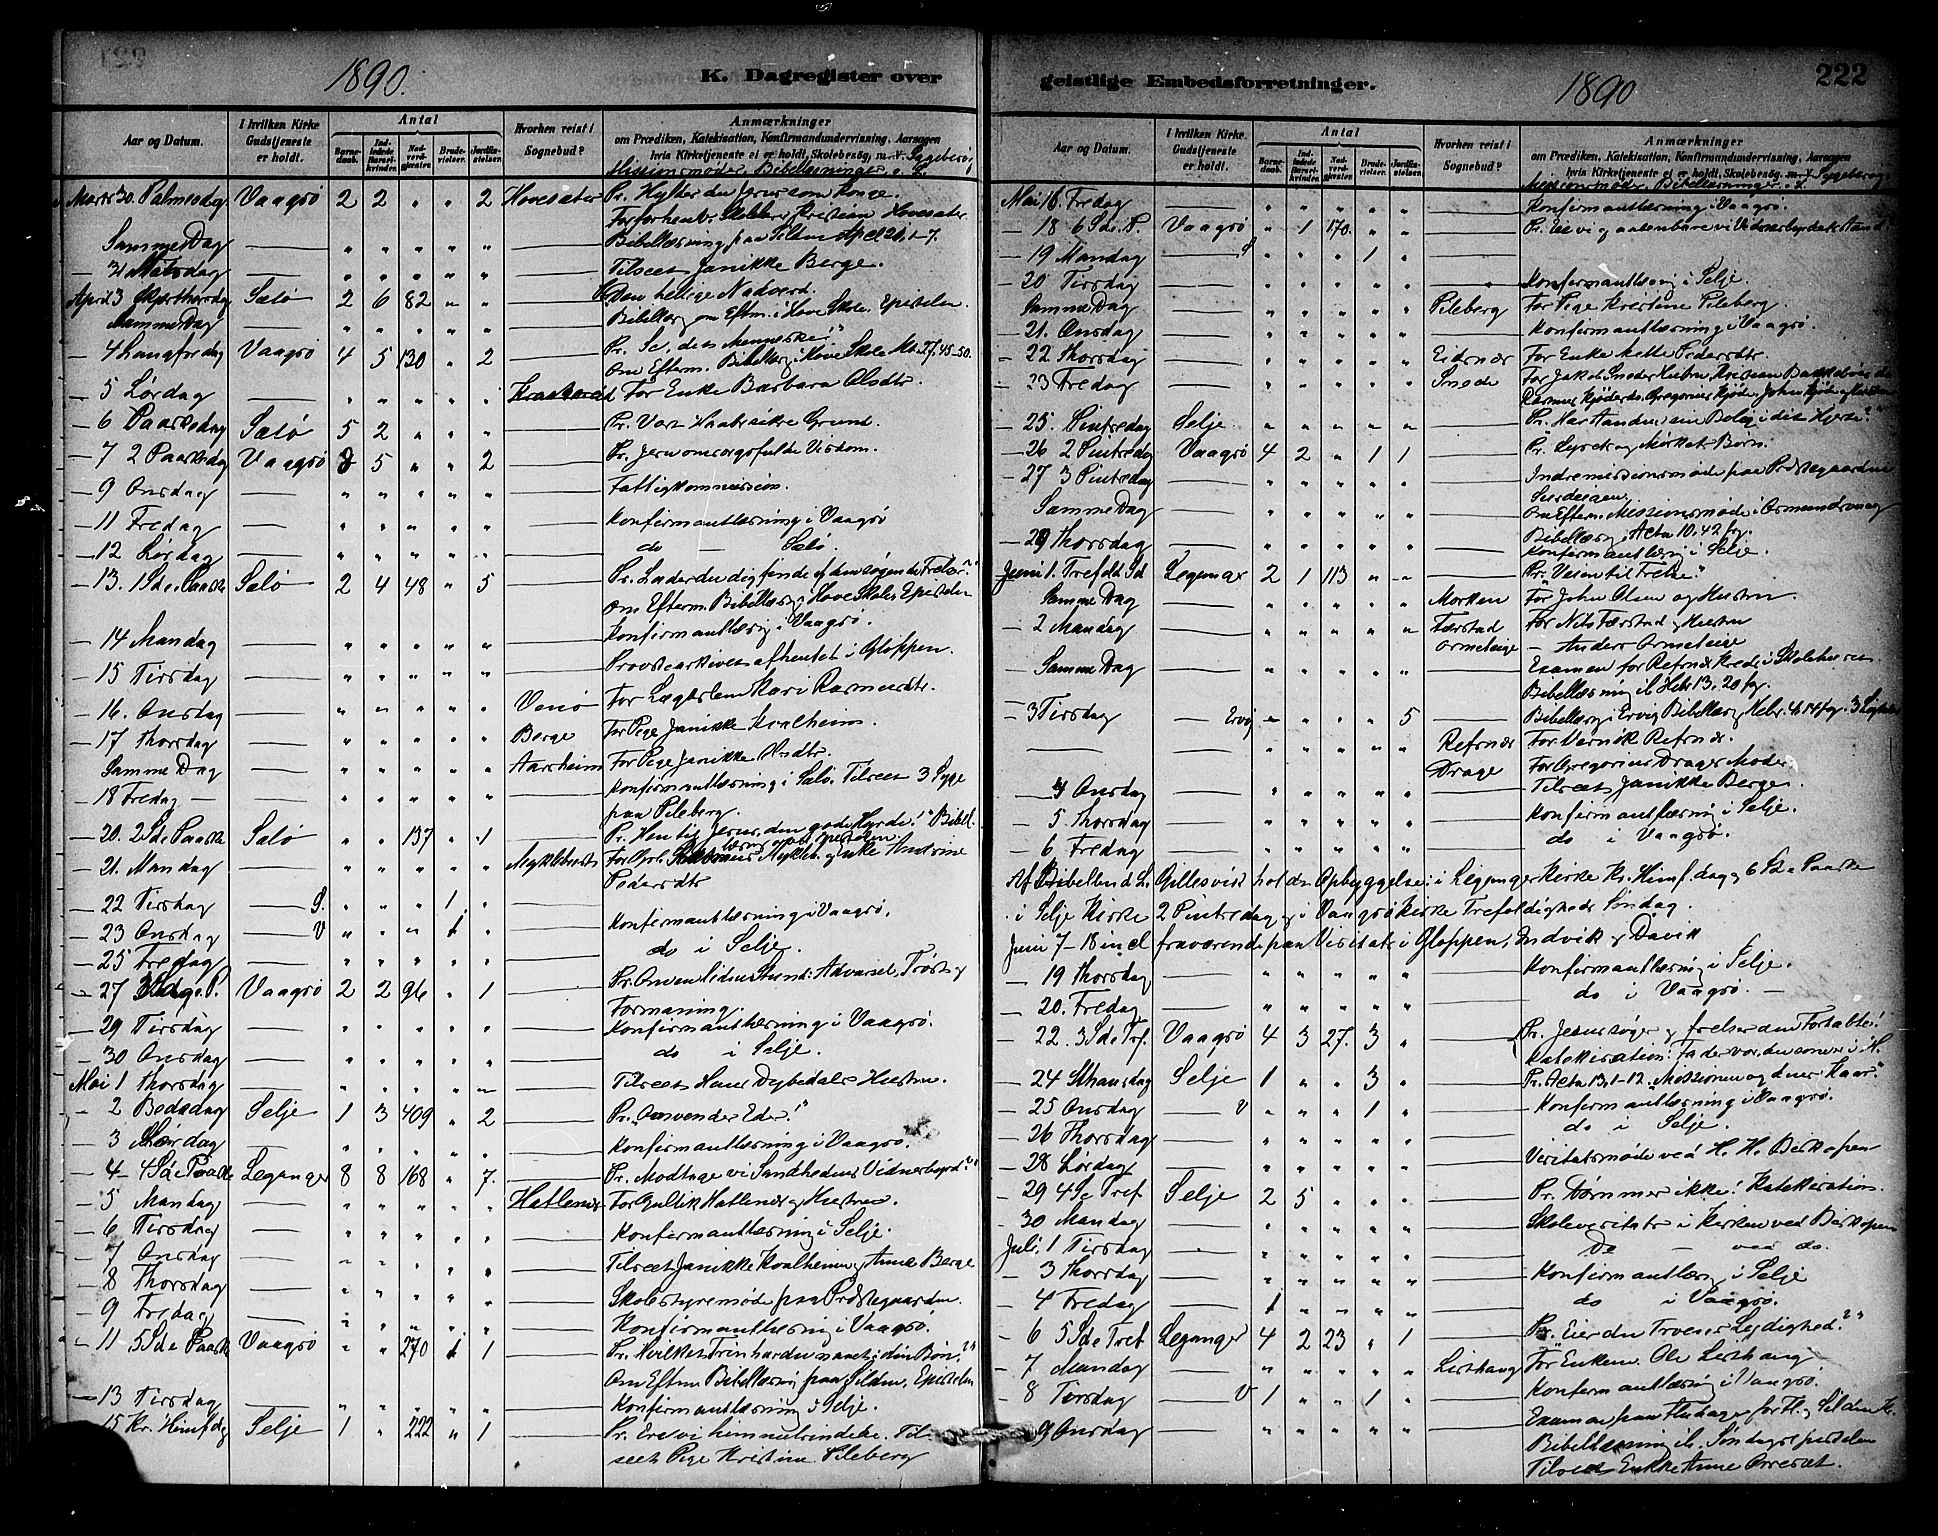 1890.
K. Dagregister over
Aar og Datum.
I hvilken Kirke Gudstjeneste er holdt.
Antal
Barnedaab.
Indledede Barselkvinder.
Nadverdgjester.
Brudevielser.
Jordfæstelser.
Hvorhen reist i Sognebud?
Anmærkninger
om Prædiken, Katekisation, Konfirmandundervisning, Aarsagen
hvis Kirketjeneste ei er holdt, Skolebesøg, m. v.
Missionsmøder, Bibellæsninger
Marts 30. Palmesdag Vaagsø 2 2 " " 2 Hovesæter Pr. Hylder du Jesus som Konge
Samme Dag — " " " " " — Bibellæsning paa Silden
— 31 — " " " " " — Tilseet Janikke Berge.
April 3 Skjærthorsdag Sælø 2 6 82 " " — Den hellige Nadverd.
Samme Dag — " " " " " — Bibellæsn. om Efterm. i Hove Skole. Epistelen.
— 4 Langfredag Vaagsø 4 5 130 " 2 — Pr. Se, det Menneske!"
Om Efterm. Bibellæsn. i Hove Skole Mt. 27, 45-50.
— 5 Lørdag — " " " " " For Enke Barbara Olsdtr.
— 6 Paaskedag Sælø 5 2 " " " — Pr. Vort Haabs sikre Grund.
— 7 2 Paaskedag Vaagsø 8 5 " " 2 — Pr. Jesu omsorgsfulde Visdom.
— 9 Onsdag — " " " " " — Fattigkommission.
— 11 Fredag — " " " " " — Konfirmantlæsning i Vaagsø
— 12 Lørdag — " " " " " — do — Sælø.
— 13. 1 Sd e. Paaske Sælø 2 4 48 " 5 — Pr. Lader du dig finde af den søgende Frelser?"
Om Efterm. Bibellæsn. i Hove Skole. Epistelen
— 14 Mandag — " " " " " — Konfirmantlæsng i Vaagsø.
— 15 Tirsdag — " " " " " — Provstearkivet afhentet i Gloppen.
— 16. Onsdag — " " " " " For Kari Rasmusdtr.
— 17 Thorsdag — " " " " " Berge For Pige Janikke Kvalheim.
Samme Dag — " " " " " Aarsheim For Pige Janikke
— 18 Fredag — " " " " " — Konfirmantlæsning i Sælø. Tilseet 3 Syge
paa Pileberg.
— 20. 2 Sd e Paaske Sælø " " 137 " 1 — Pr. Hen til Jesus, den gode Hyrde!" Bibel-
— 21. Mandag — " " " " " Myklebust
Pedersdtr
— 22 Tirsdag — S. " " " 1 " —
— 23 Onsdag — V " " " 1 " — Konfirmantlæsning i Vaagsø.
— 25 Fredag — " " " " " — do i Selje.
— 27 3 Sd e. P. Vaagsø 2 2 96 " 1 — Pr. Om en liden Stund: Advarsel, Trøst og
Formaning.
— 29 Tirsdag — " " " " " — Konfirmantlæsning i Vaagsø.
— 30 Onsdag — " " " " " — do i Selje.
Mai 1 Thorsdag — " " " " " — Tilseet Hans Dybedals Hustru.
— 2 Bededag Selje 1 3 409 " 2 — Pr. "Omvender Eder!"
— 3 Lørdag — " " " " " — Konfirmantlæsning i Vaagsø.
— 4 4 Sd e Paaske Leganger 8 8 168 " 7. — Pr. Modtage vi Sandhedens Vidnesbyrd?"
— 5 Mandag — " " " " " Hatlenæs For Gullik Hatlenæs og Hustru.
— 6 Tirsdag — " " " " " — Konfirmantlæsning i Selje.
— 7 Onsdag — " " " " " — Tilseet Janikke Kvalheim og Anne Berge
— 8 Thorsdag — " " " " " — Skolestyremøde paa Præstegaarden.
— 9 Fredag — " " " " " — Konfirmantlæsning i Vaagsø.
— 11 5 Sd e Paaske Vaagsø " " 270 1 1 — Pr. Hvilket Trin har du naaet i din Bøn?"
Om Efterm Bibellæsning paa Silden. Epistelen
— 13 Tirsdag — " " " " " — Konfirmantlæsning i Selje.
— 15 Kr. Himf. dg Selje 1 " 222 " 1 — Pr. Ere vi himmelsindede. Til-
seet Pige Kristine Pileberg
geistlige Embedsforretninger.
1890
222
Aar og Datum.
I hvilken Kirke Gudstjeneste er holdt.
Antal
Barnedaab.
Indledede Barselkvinder.
Nadverdgjester.
Brudevielser.
Jordfæstelser.
Hvorhen reist i Sognebud?
Anmærkninger
om Prædiken, Katekisation, Konfirmandundervisning, Aarsagen
hvis Kirketjeneste ei er holdt, Skolebesøg, m. v.
Missionsmøder, Bibellæsninger
Mai 16 Fredag — " " " " " — Konfirmantlæsning i Vaagsø.
— 18 6 Sd e. P. Vaagsø " 1 170. " " — Pr. Ere vi
— 19 Mandag — S " " " 1 " —
— 20 Tirsdag — " " " " " — Konfirmantlæsng i Selje.
Samme Dag — " " " " " Pileberg For Pige Kristine Pileberg.
— 21. Onsdag — " " " " " — Konfirmantlæsning i Vaagsø.
— 22 Thorsdag — " " " " " Eidsnær For Enke Pedersdtr.
— 23 Fredag — " " " " " For Jakob
— 25. Pintsedag Selje " " " " " — Pr. Har Aanden sin Bolig i dit Hjerte?"
— 26 2 Pintsedag Vaagsø 4 2 " 1 1 — Pr. Lysets og Mørkets Børn."
— 27 3 Pintsedag — " " " " " — Indremissionsmøde paa Præstegaarden
Samme Dag — " " " " " — Om Efterm. Missionsmøde i
— 29 Thorsdag — " " " " " — Bibellæsng Acta 10, 42 fg.
Konfirmantlæsng i Selje.
Juni 1. Trefold. Sd Leganger 2 1 113 " " — Pr. Veien til Frelse."
Samme Dag — " " " " " Morken For John Olsen og Hustru.
— 2 Mandag — " " " " " Færstad For Nils Færstad og Hustru
Ormeteige — Anders Ormeteige
Samme Dag — " " " " " — Examen for Refsnæs Kreds i Skolehuset
Bibellæsning Hebr 13, 20 fg.
— 3 Tirsdag — Ervig " " " " 5 — Bibellæsg i Ervig
— — " " " " " Refsnæs For Refsnæs.
Drage For Gregorius Drages Moder
— 4 Onsdag — " " " " " — Tilseet Janikke Berge.
— 5 Thorsdag — " " " " " — Konfirmantlæsning i Selje.
— 6 Fredag — " " " " " — do i Vaagsø.
Af Bibelbud L. Gillesvik holdes Opbyggelse: i Leganger Kirke Kr. Himf. dag og 6 Sd e Paaske
i Selje Kirke 2 Pintsedag og i Vaagsø Kirke Trefoldigheds Søndag.
Juni 7-18 incl fraværende paa Visitats i Gloppen, Indvik og Davik
— 19 Thorsdag — " " " " " — Konfirmantlæsning i Selje.
— 20. Fredag — " " " " " — do i Vaagsø. —
— 22. 3 Sd e Tref. Vaagsø 4 3 27. 3 " — Pr. Jesus søger og frelser den Fortabte!
Katekisation: Fader vor, du som er i H.
— 24 St hansdag Selje 1 " " 3 " — Pr. Acta 13, 1-12. "Missionen og dens Kaar."
— 25 Onsdag — V " " " 1 " — Konfirmantlæsning i Vaagsø.
— 26 Thorsdag — " " " " " — do i Selje.
— 28 Lørdag — " " " " " — Visitatsmøde ved H. H. Biskopen
— 29 4 Sd e Tref Selje 2 5 " " " — Pr. Dømmer ikke! Katekisation.
— 30 Mandag — " " " " " — Skolevisitats i Kirken ved Biskopen
Juli. 1 Tirsdag — " " " " " — Do — ved do.
— 3 Thorsdag — " " " " " — Konfirmantlæsg i Selje
— 4 Fredag — " " " " " — do i Vaagsø.
— 6 5 Sd e Tref Leganger 4 2 23 " 1 — Pr. Eier du Troens Lydighed?"
— 7 Mandag — " " " " " Listhaug For Enkem. Ole Listhaug
— 8 Tirsdag — V 1 " " 1 " — Konfirmantlæsning i Vaagsø.
— 9 Onsdag — " " " " " — Examen paa
Bibellæsning Søndags epistelen
Tilseet Enke Anne